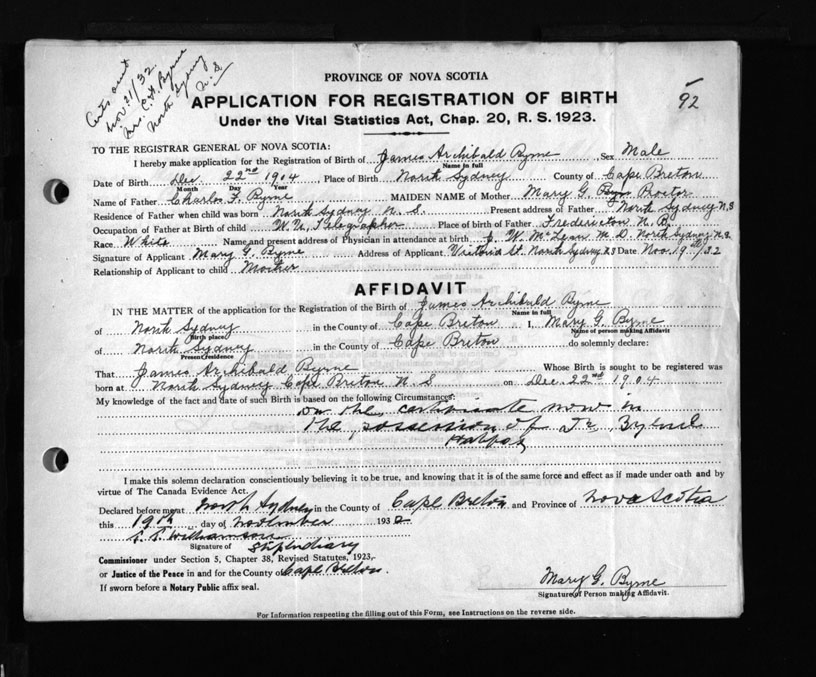 Certs sent
Nov 21/32.
Mrs. C. F. Byrne
North Sydney
N. S.
92
PROVINCE OF NOVA SCOTIA
APPLICATION FOR REGISTRATION OF BIRTH
Under the Vital Statistics Act, Chap. 20, R. S. 1923.
TO THE REGISTRAR GENERAL OF NOVA SCOTIA:
I hereby make application for the Registration of Birth of James Archibald Byrne, Sex Male
Name in full
Date of Birth Dec 22nd 1904, Place of Birth North Sydney County of Cape Breton
Month Day Year
Name of Father Charles F. Byrne MAIDEN NAME of Mother Mary G. Byrn Proctor
Residence of Father when child was born North Sydney N. S. Present address of Father North Sydney N.S
Occupation of Father at Birth of child W. U. Telegrapher Place of birth of Father Fredericton N. B.
Race White Name and present address of Physician in attendance at birth W. McLean M. D. North Sydney N.S.
Signature of Applicant Mary G. Byrne Address of Applicant Victoria St. North Sydney N S Date Nov. 19th/32
Relationship of Applicant to child Mother
AFFIDAVIT
IN THE MATTER of the application for the Registration of the Birth of James Archibald Byrne
Name in full
of North Sydney in the County of Cape Breton I, Mary G. Byrne
Birth place Name of person making Affidavit
of North Sydney in the County of Cape Breton do solemnly declare:
Present residence
That James Archibald Byrne Whose Birth is sought to be registered was
born at North Sydney Cape Breton N. S on Dec. 22nd 1904
My knowledge of the fact and date of such Birth is based on the following Circumstances:
on the now in
the possession of
Halifax
I make this solemn declaration conscientiously believing it to be true, and knowing that it is of the same force and effect as if made under oath and by
virtue of The Canada Evidence Act.
Declared before me at North Sydney in the County of Cape Breton and Province of Nova Scotia
this 19th day of November 1932
Williamson
Signature of Stipendiary
Commissioner under Section 5, Chapter 38, Revised Statutes, 1923,
or Justice of the Peace in and for the County of Cape Breton.
If sworn before a Notary Public affix seal.
Mary G. Byrne
Signature of Person making Affidavit.
For Information respecting the filling out of this Form, see Instructions on the reverse side.